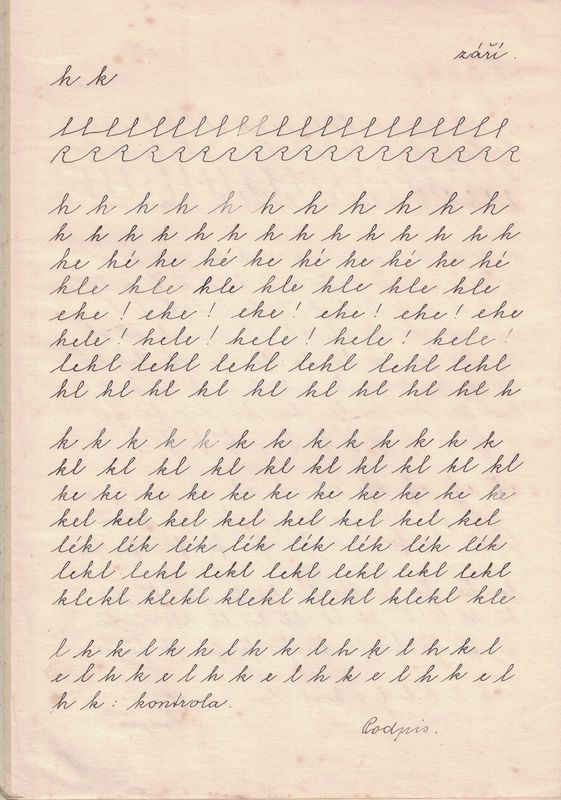 září.
h k
h h h h h h h h h h h
h h h h h h h h h h h h h
he hé he hé he hé he hé he hé
hle hle hle hle hle hle hle
ehe ! ehe ! ehe ! ehe ! ehe ! ehe
hele ! hele ! hele ! hele ! hele !
lehl lehl lehl lehl lehl lehl
hl hl hl hl hl hl hl hl hl h
k k k k k k k k k k k k k
kl kl kl kl kl kl kl kl kl kl
ke ke ke ke ke ke ke ke ke ke ke
kel kel kel kel kel kel kel kel
lék lék lék lék lék lék lék lék
lekl lekl lekl lekl lekl lekl lekl
klekl klekl klekl klekl klekl kle
l h k l k h l h k l h k l h k l
e l h k e l h k e l h k e l h k e l
h k : kontrola.
Podpis.